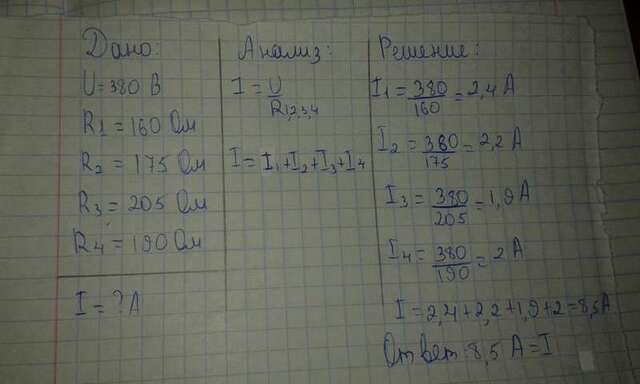 Дано:
U = 380 В
R1 = 160 Ом
R2 = 175 Ом
R3 = 205 Ом
R4 = 190 Ом
I = ? А
Анализ:
I = U
R1,2,3,4
I = I1 + I2 + I3 + I4
Решение:
I1 = 380/160 = 2,4 А
I2 = 380/175 = 2,2 А
I3 = 380/205 = 1,9 А
I4 = 380/190 = 2 А
I = 2,4 + 2,2 + 1,9 + 2 = 8,5 А
Ответ: 8,5 А = I